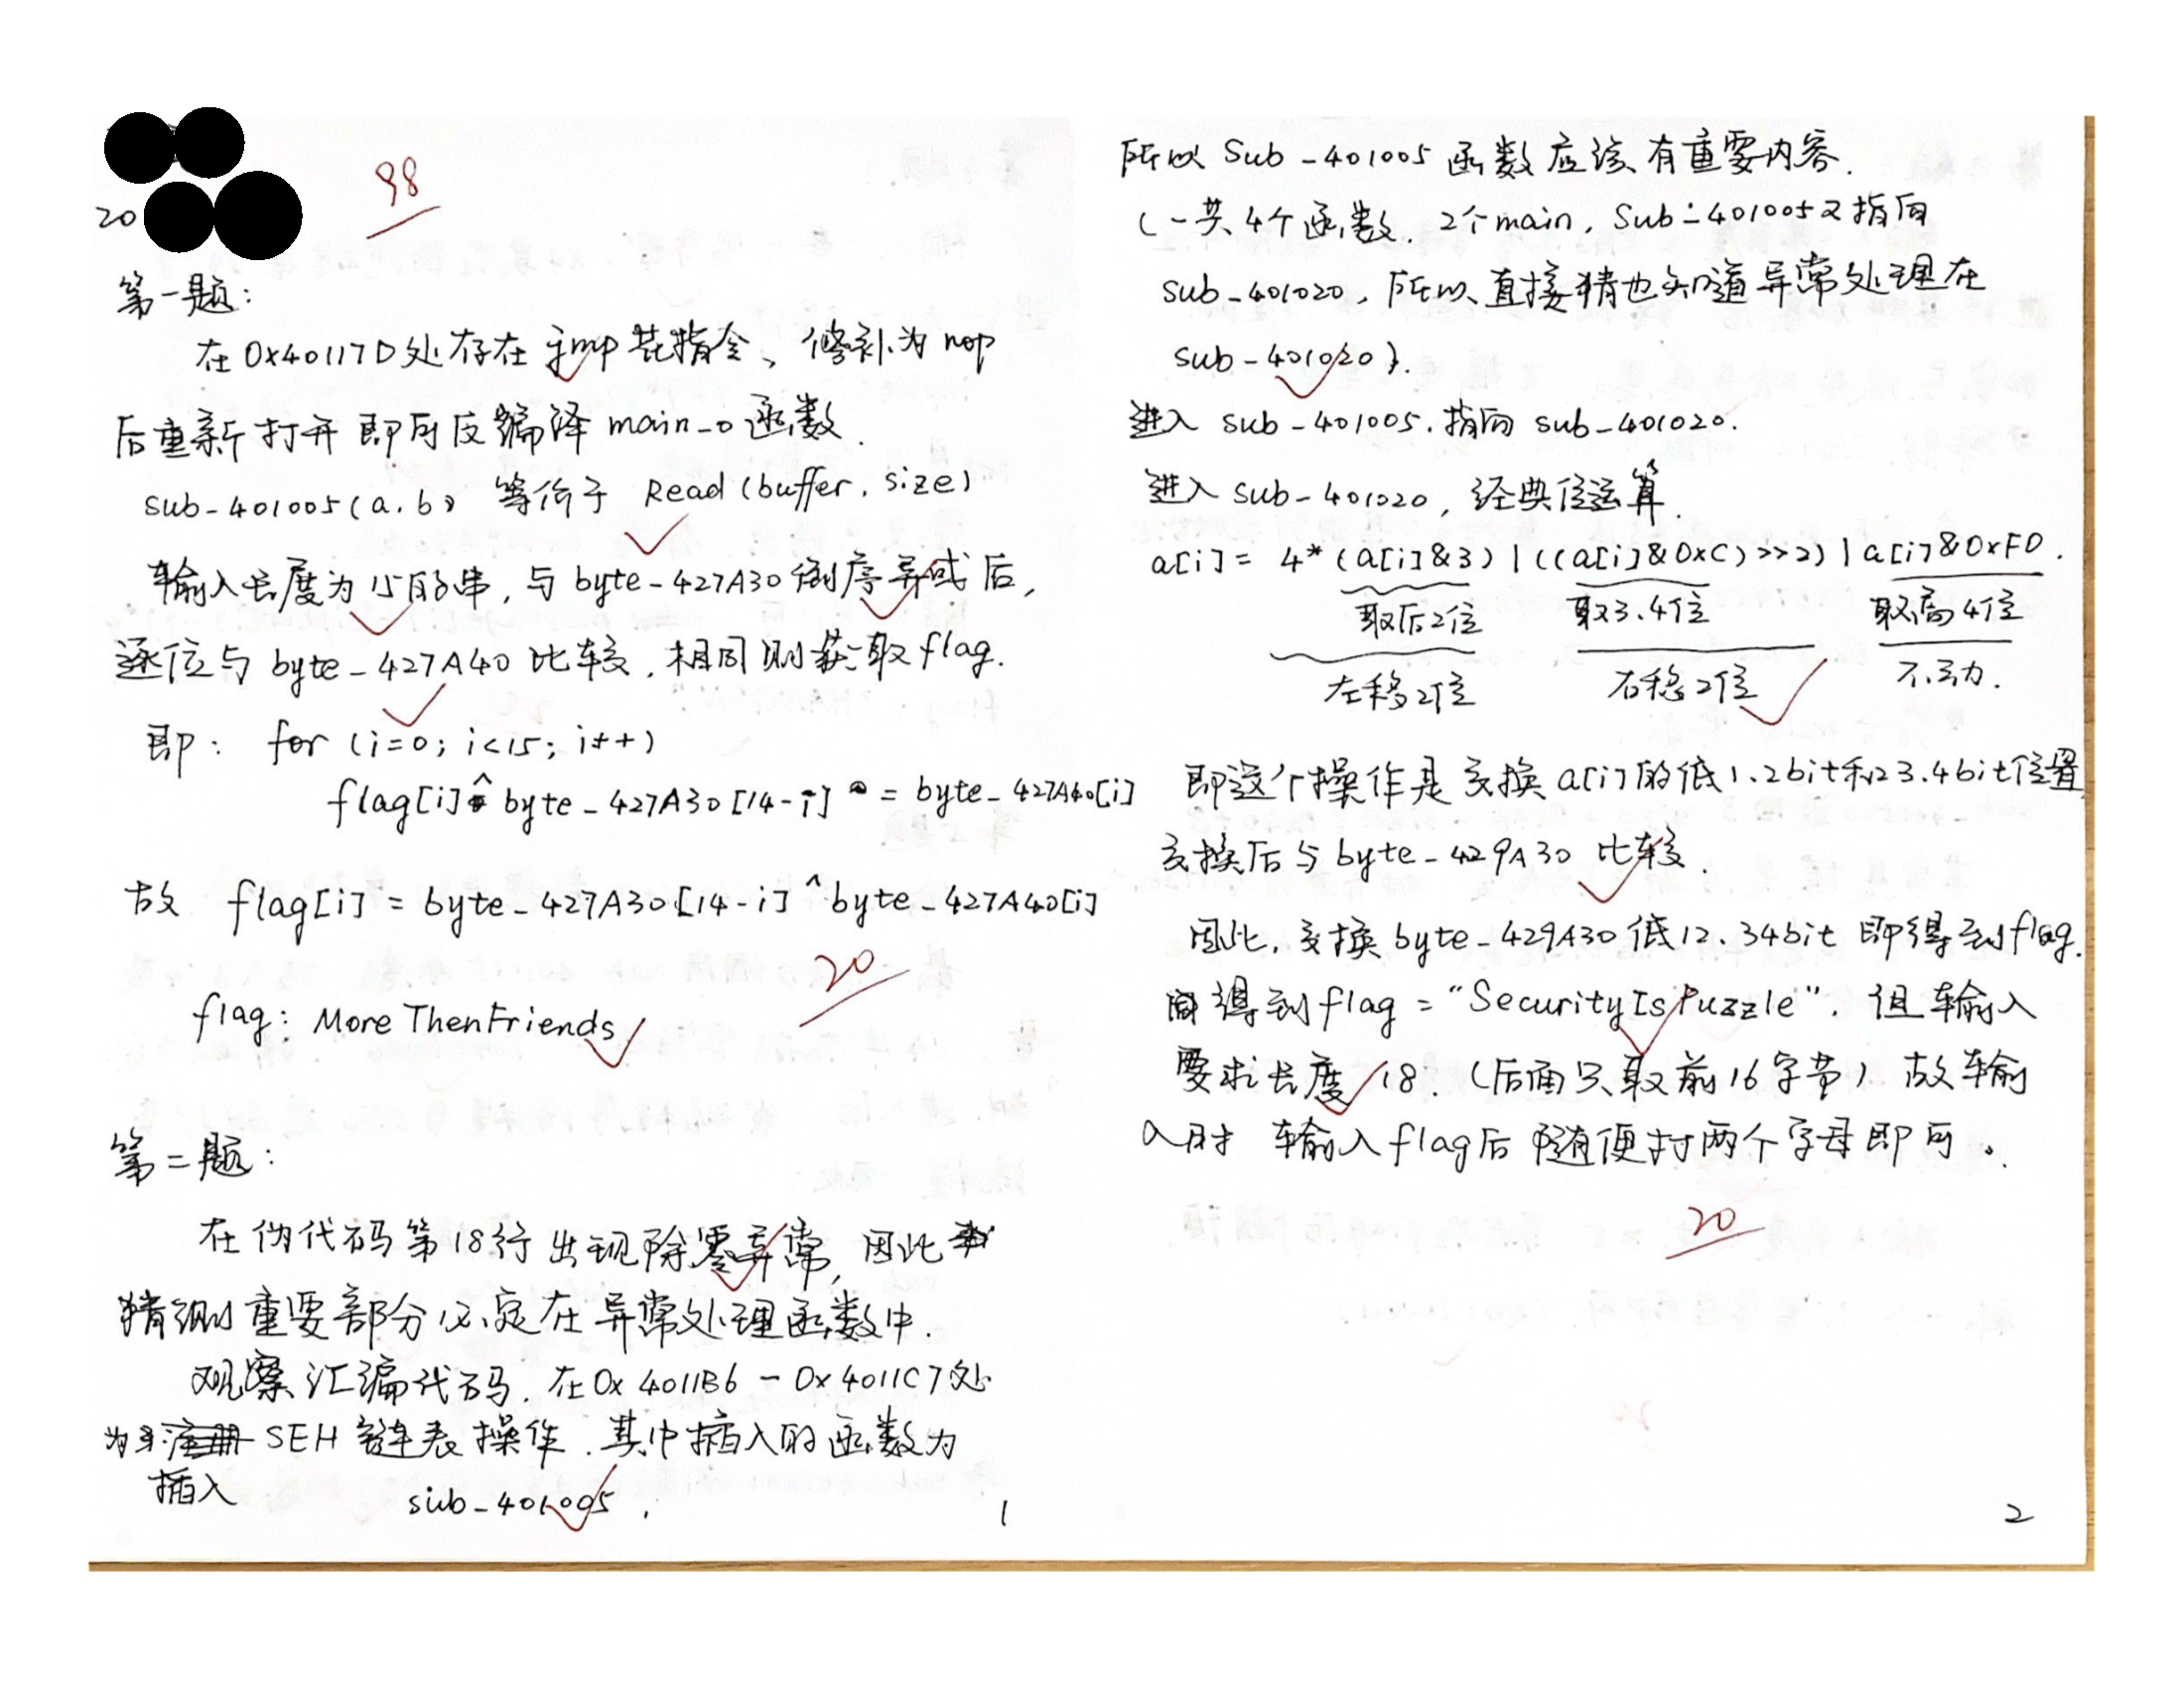 20
98
第一题:
在0x40117D处存在jmp花指令、修补为nop
后重新打开即可反编译main_0函数.
sub_401005(a,b) 等价于 Read(buffer,size)
输入长度为15的串,与byte_427A30倒序异或后,
逐位与byte_427A40比较,相同则获取flag.
即: for (i=0; i<15; i++)
flag[i]^ byte_427A30[14-i] = byte_427A40[i]
故 flag[i] = byte_427A30[14-i] ^ byte_427A40[i]
20
flag: MoreThenFriends
第二题:
在伪代码第18行出现除零异常,因此
猜测重要部分必定在异常处理函数中.
观察汇编代码.在0x4011B6-0x4011C7处
为 SEH链表操作.其中插入的函数为
插入
sub_401005.
1
所以Sub_401005函数应该有重要内容.
(一共4个函数.2个main,Sub_401005又指向
sub_401020,所以直接猜也知道异常处理在
sub_401020).
进入sub_401005.指向sub_401020.
进入sub_401020,经典位运算.
a[i]= 4*(a[i]&3)|((a[i]&0xC)>>2)|a[i]&0xF0.
取后2位 取3.4位 取高4位
左移2位 右移2位 不动.
即这个操作是交换a[i]的低1.2bit和3.4bit位置
交换后与byte_429A30比较.
因此,交换byte_429A30低12、34bit即得到flag.
得到flag="SecurityIsPuzzle".但输入
要求长度18.(后面只取前16字节)故输
入时 输入flag后随便打两个字母即可。
20
2